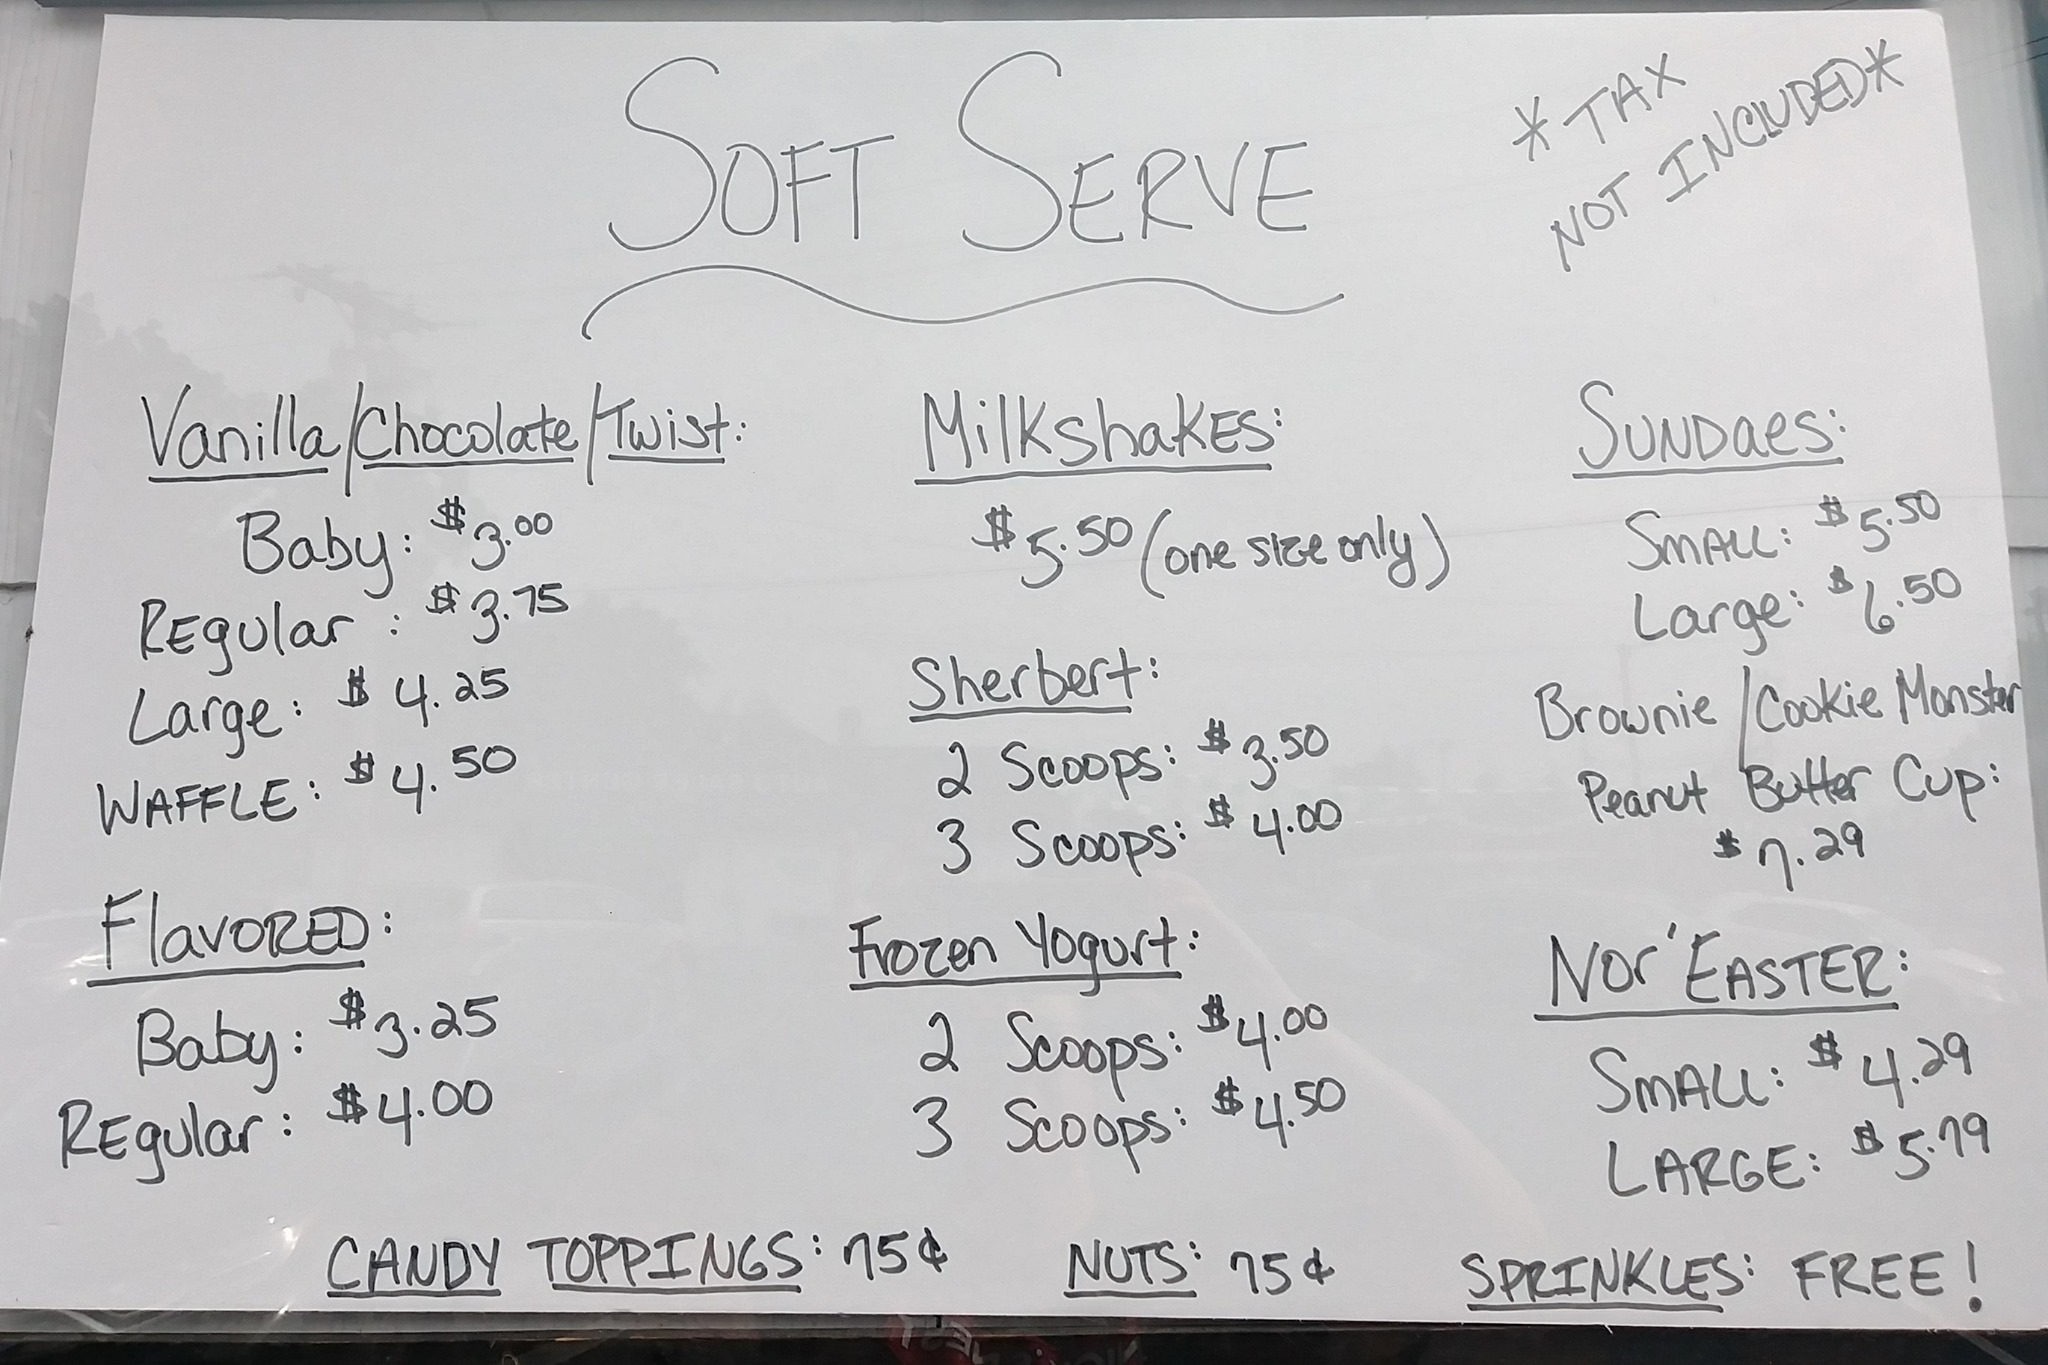 SOFT SERVE
*TAX
NOT INCLUDED*
Vanilla/Chocolate/Twist:
Baby: $3.00
Regular: $3.75
Large: $4.25
WAFFLE: $4.50
FlavORED:
Baby: $3.25
Regular: $4.00
MilkshaKES:
$5.50 (one size only)
Sherbert:
2 Scoops: $3.50
3 Scoops: $4.00
Frozen Yogurt:
2 Scoops: $4.00
3 Scoops: $4.50
SUNDaeS:
SMALL: $5.50
Large: $6.50
Brownie/Cookie Monster
Peanut Butter Cup:
$7.29
Nor'EASTER:
SMALL: $4.29
LARGE: $5.79
CANDY TOPPINGS: 75¢
NUTS: 75¢
SPRINKLES: FREE!